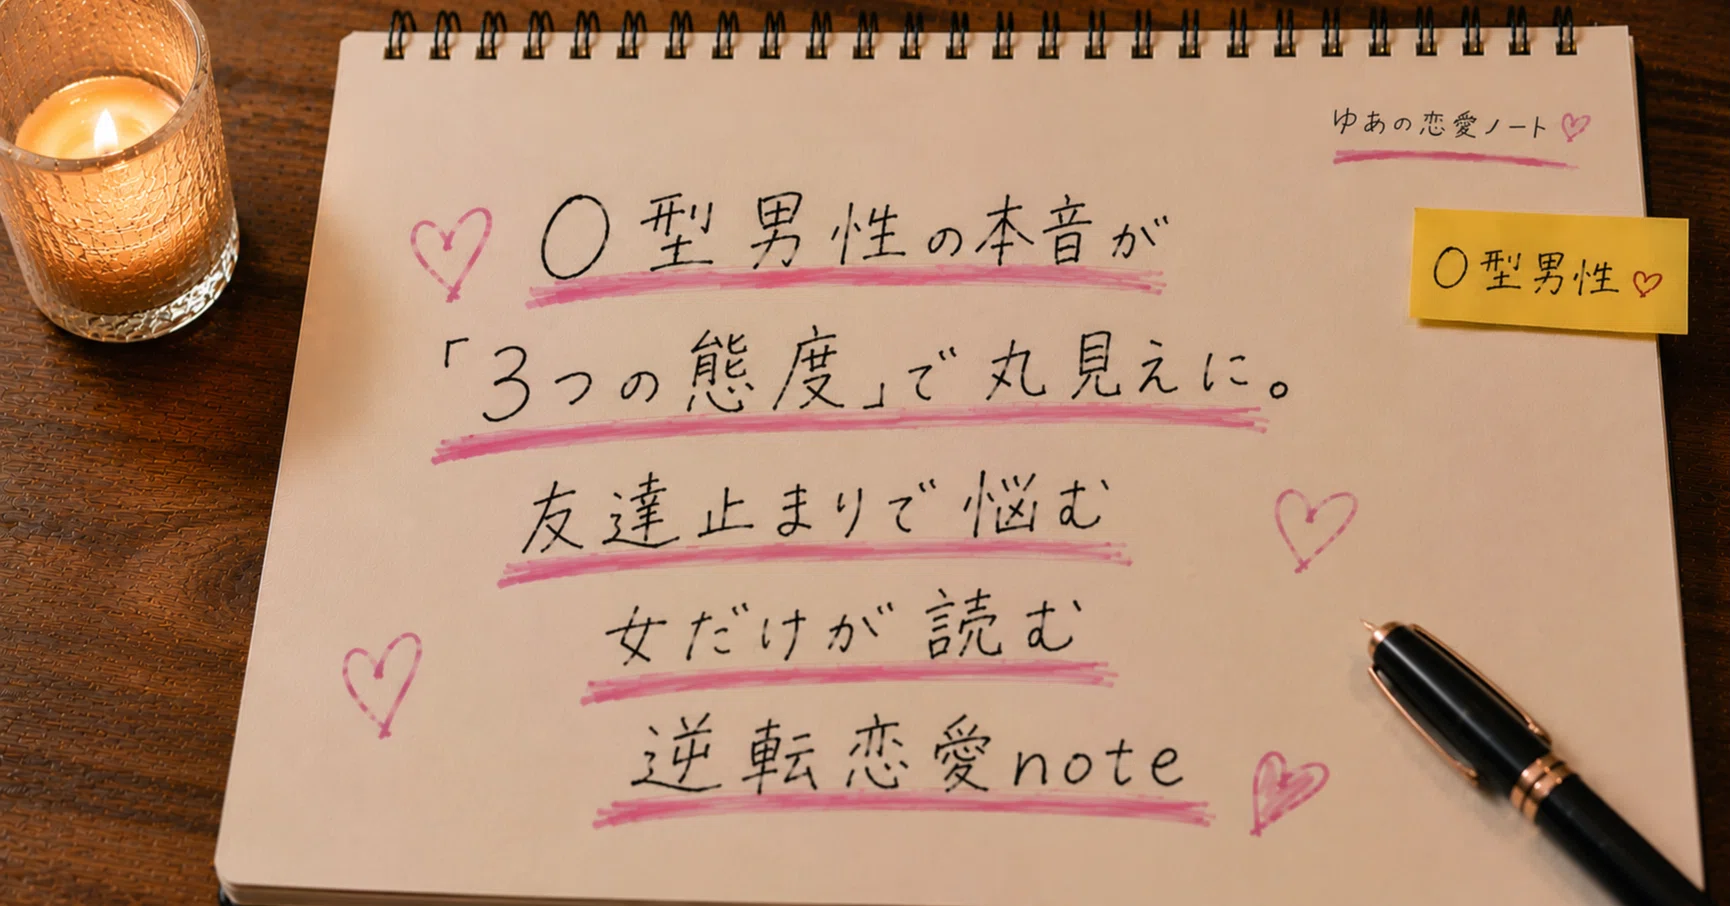 ゆあの恋愛ノート♡
O型男性の本音が
O型男性♡
「3つの態度」で丸見えに。
友達止まりで悩む
女だけが読む
逆転恋愛note